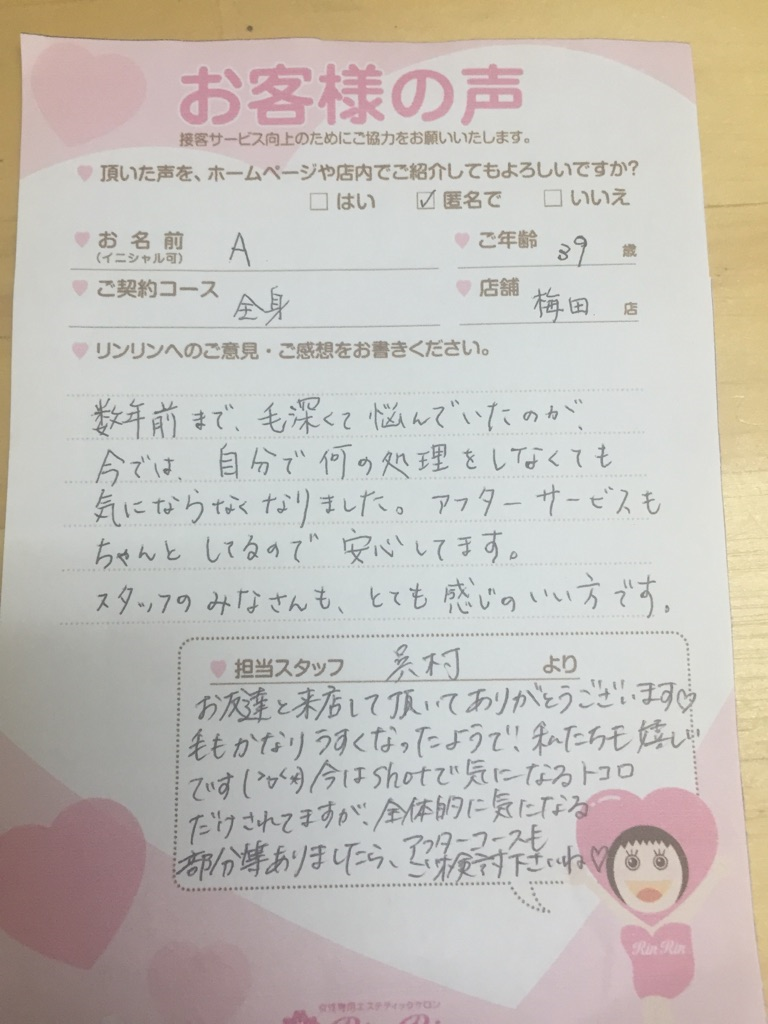 お客様の声
接客サービス向上のためにご協力をお願いいたします。
頂いた声を、ホームページや店内でご紹介してもよろしいですか?
□ はい ☑ 匿名で □ いいえ
お名前 A ご年齢 39 歳
(イニシャル可)
ご契約コース 全身 店舗 梅田 店
リンリンへのご意見・ご感想をお書きください。
数年前まで、毛深くて悩んでいたのが、
今では、自分で何の処理をしなくても
気にならなくなりました。アフターサービスも
ちゃんとしてるので安心してます。
スタッフのみなさんも、とても感じのいい方です。
担当スタッフ 呉村 より
お友達と来店して頂いてありがとうございます♡
毛もかなりうすくなったようで!私たちも嬉しい
です 今はshotで気になるトコロ
だけされてますが、全体的に気になる
部分等ありましたら、アフターコースも
ご検討下さいね♡
RinRin
女性専用エステティックサロン